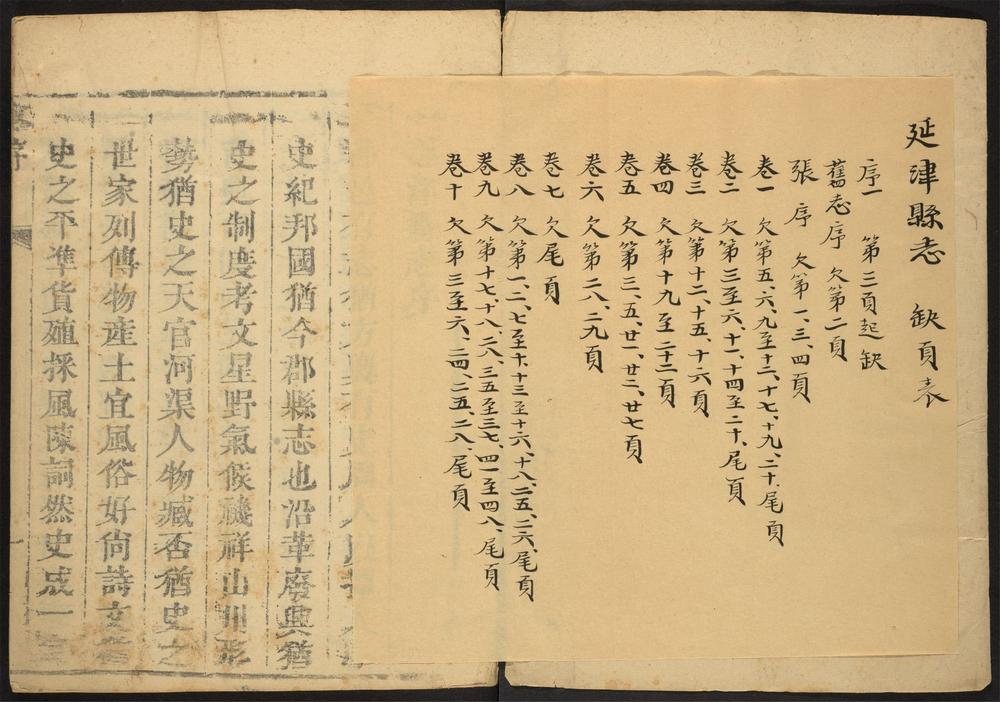 延津縣志 缺頁表
序一 第三頁起缺
舊志序 欠第二頁
張序 欠第一、三、四頁
卷一 欠第五、六、九至十二、十七、十九、二十、尾頁
卷二 欠第三至六、十一、十四至二十、尾頁
卷三 欠第十二、十五、十六頁
卷四 欠第十九至二十二頁
卷五 欠第三、五、廿一、廿二、廿七頁
卷六 欠第二八、二九頁
卷七 欠尾頁
卷八 欠第一、二、七至十、十三至十六、十八、二五、二六、尾頁
卷九 欠第十七、十八、二八、三五至三七、四一至四八、尾頁
卷十 欠第三至六、二四、二五、二八、尾頁
史紀邦國猶今郡縣志也沿革廢興猶
史之制度考文星野氣候禨祥山川形
勢猶史之天官河渠人物臧否猶史之
世家列傳物產土宜風俗好尙詩文猶
史之平準貨殖採風陳詞然史成一